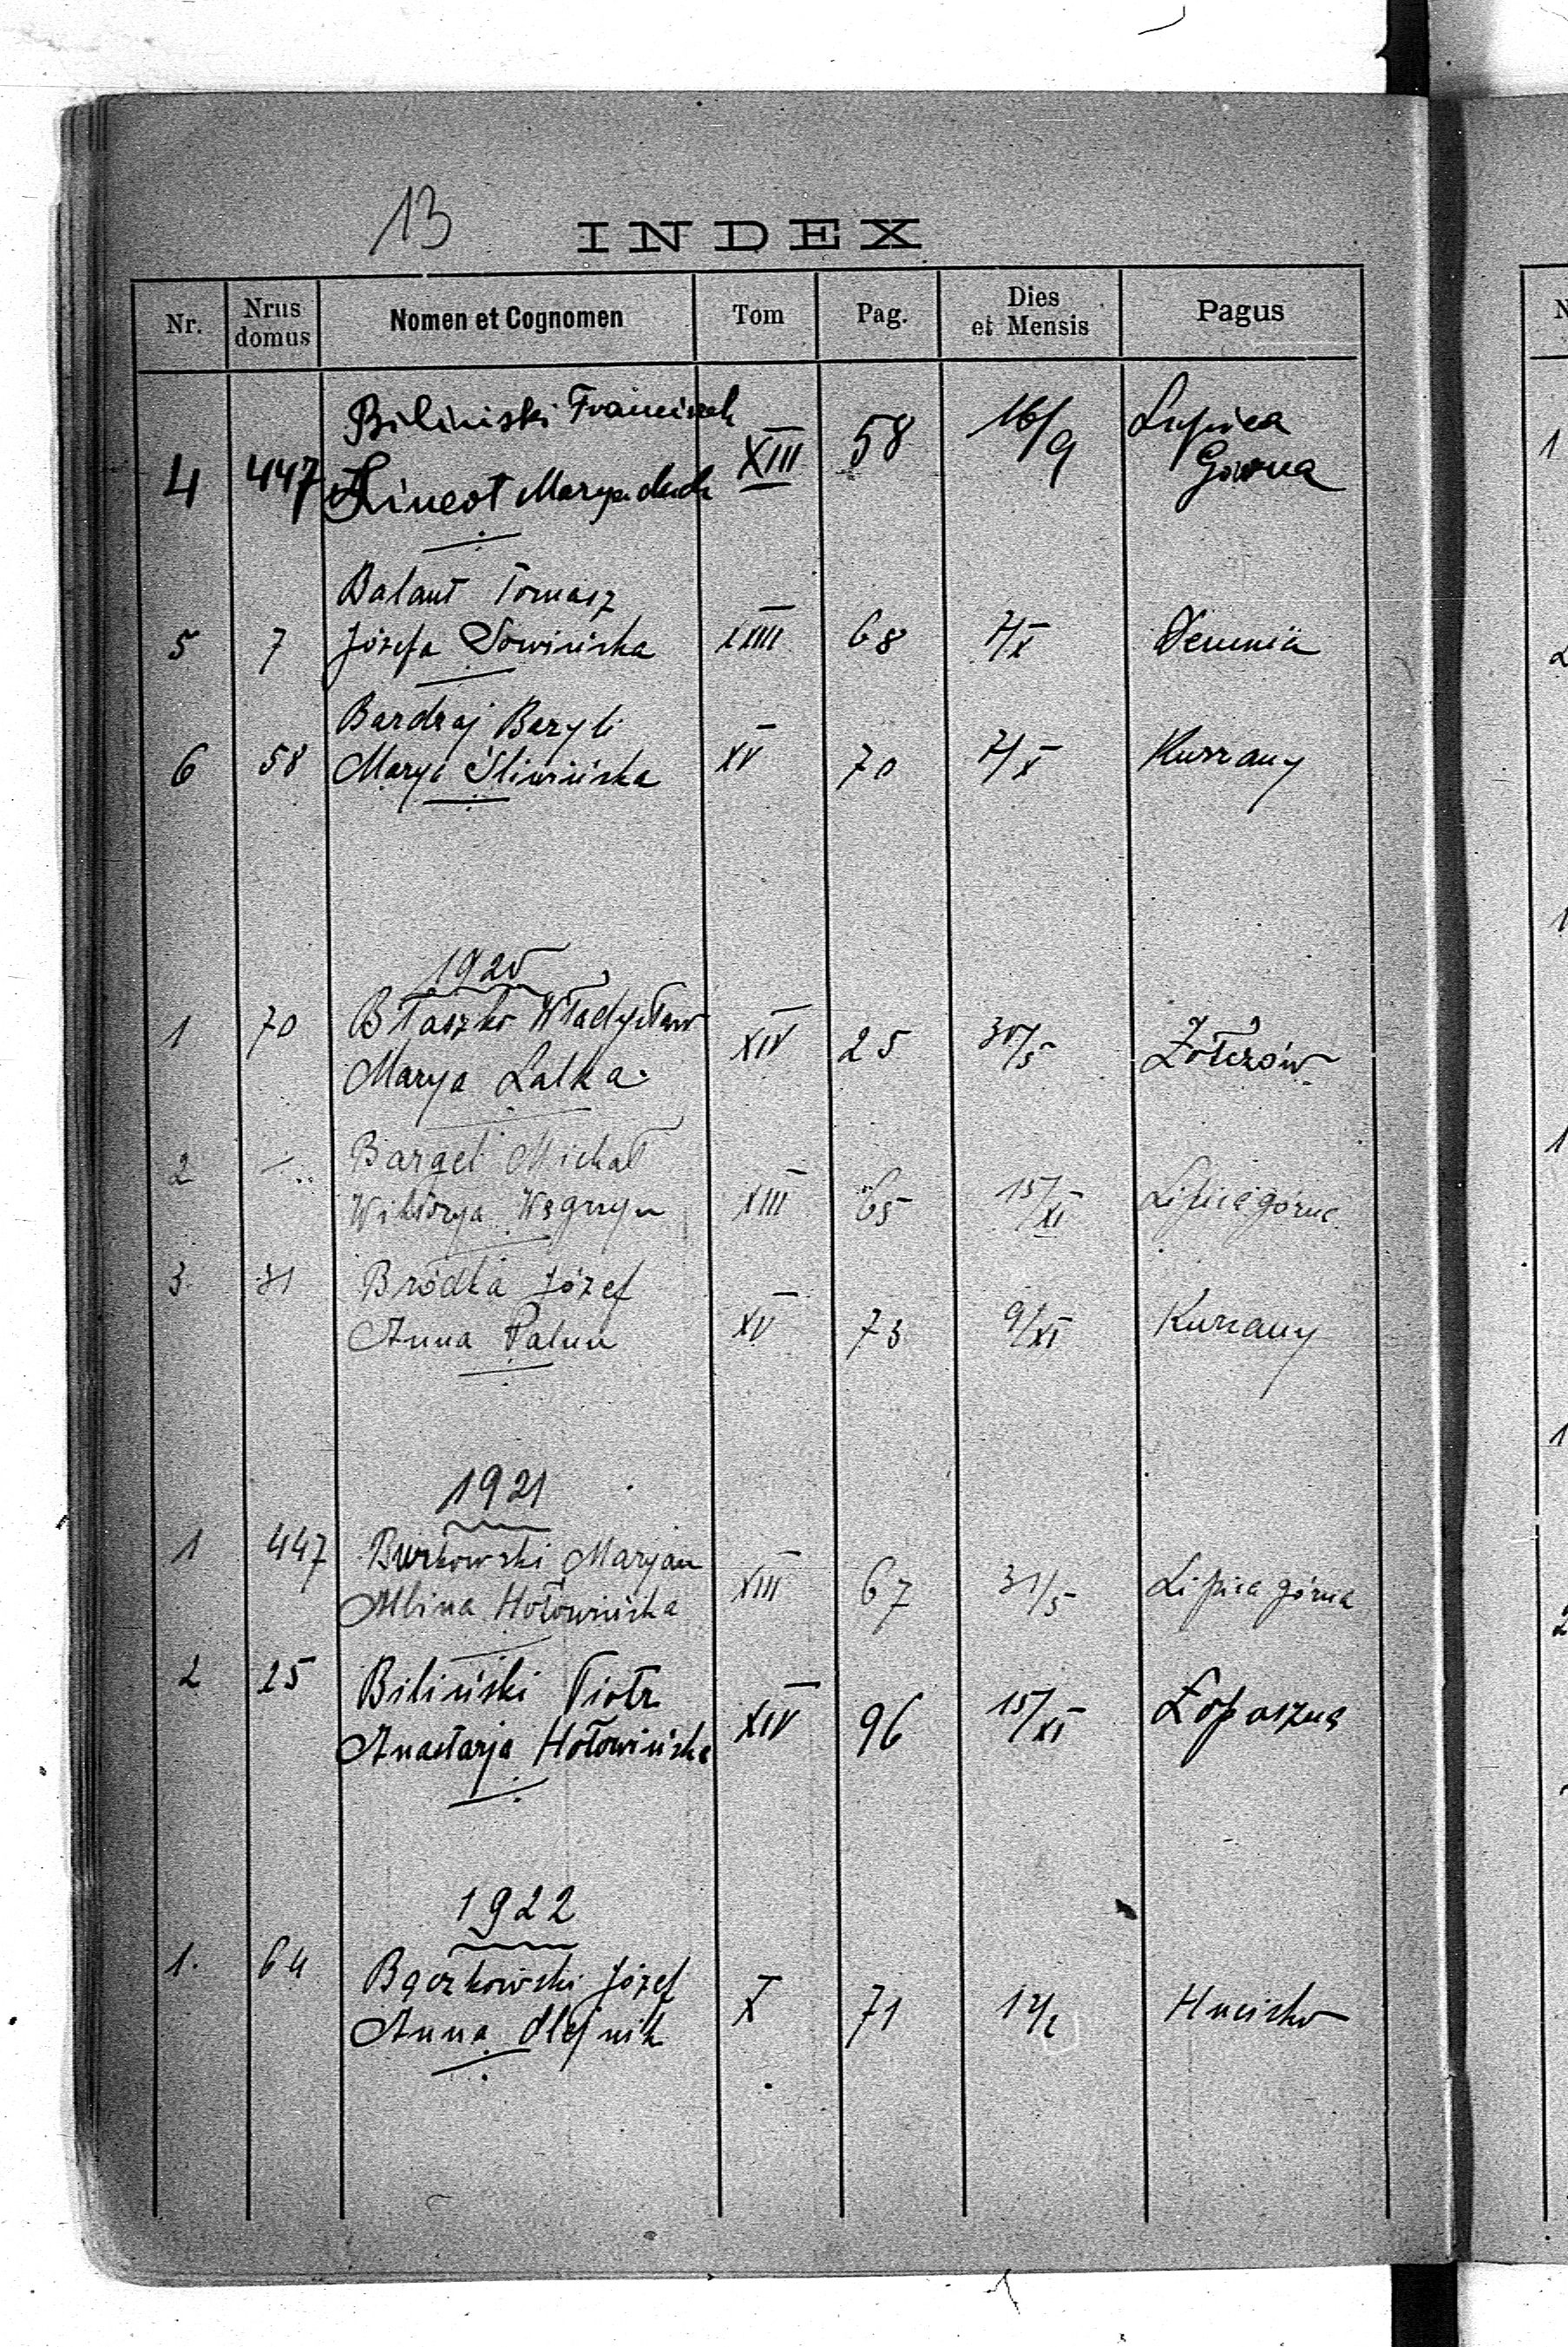 13
INDEX
Nr. Nrus domus Nomen et Cognomen Tom Pag. Dies et Mensis Pagus
Biliński Franciszek
4 447 Kineot XIII 58 16/9 Lipica Górna
Balant Tomasz
5 7 Józefa Sowińska XIII 68 7/X Demnia
Bardraj Bazyli
6 58 Marya Śliwińska XV 70 7/X Kurzany
1920
1 70 Błaszko Władysław XIV 25 30/5 Żołczów
Marya Lalka
2 — Bargel Michał
Wiktorya Węgrzyn XIII 65 15/XI Lipica górna
3. 31 Bródka Józef
Anna Paluu XV 73 9/XI Kurzany
1921
1 447 Burkowski Maryan
Albina Hołowińska XIII 67 31/5 Lipica górna
2 25 Biliński Piotr
Anastazja Hołowińska XIV 96 15/XI Łopuszna
1922
1. 64 Bączkowski Józef
Anna Olejnik X 71 12/2 Hucisko